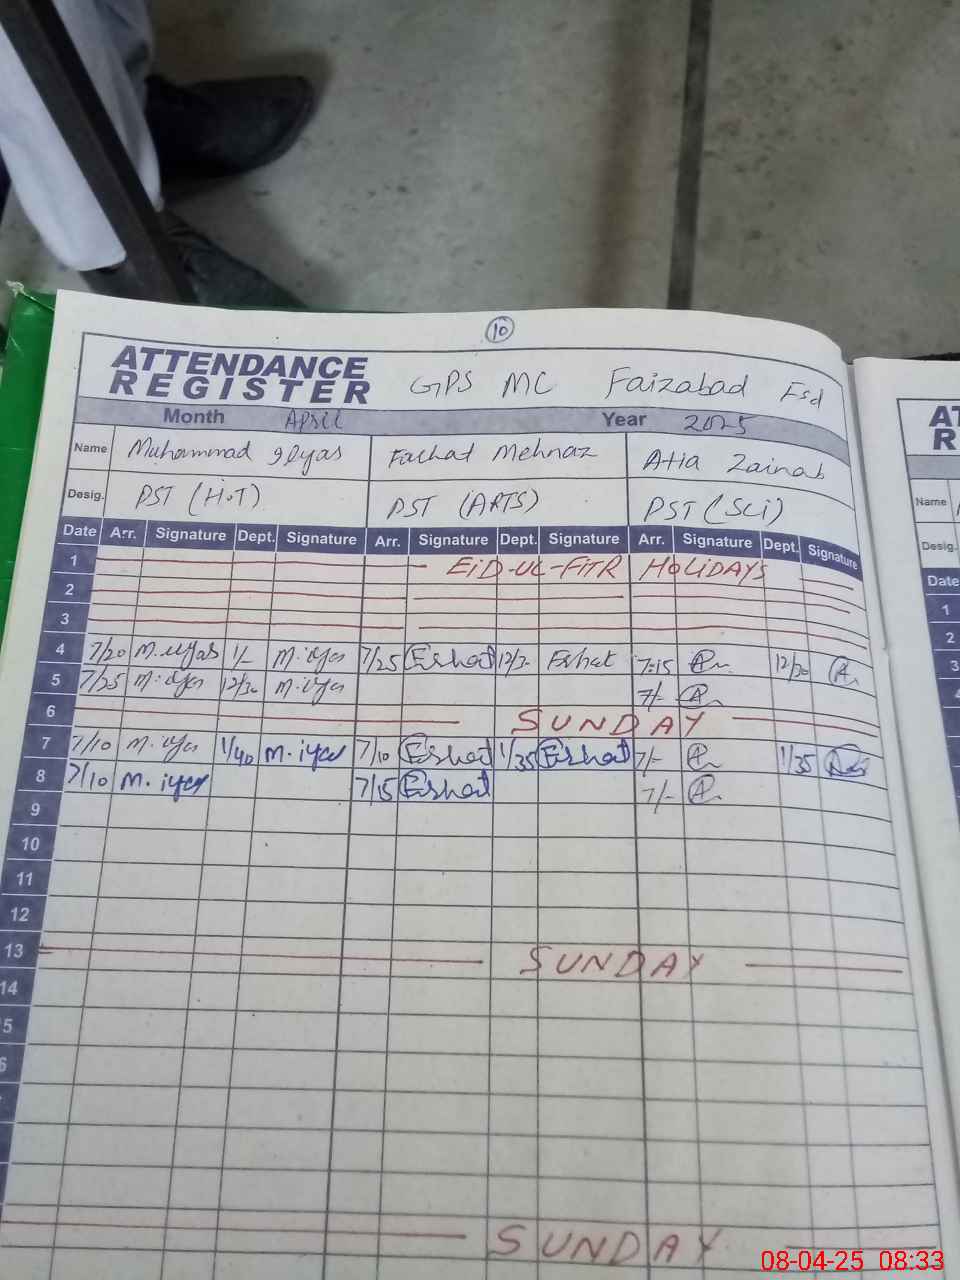 10
ATTENDANCE
REGISTER
GPS MC Faizabad Fsd
Month April Year 2025
Name Muhammad Ilyas Farhat Mehnaz Atia Zainab
Desig. PST (H.T) PST (ARTS) PST (SCI)
Date Arr. Signature Dept. Signature Arr. Signature Dept. Signature Arr. Signature Dept. Signature
1 EID-UL-FITR HOLIDAYS
2
3
4 7/20 M. ilyas 1/- M. ilyas 7/25 Eshat 12/30 Eshat 7:15 12/30
5 7/25 M. ilyas 12/30 M. ilyas 7/-
6 SUNDAY
7 7/10 M. ilyas 1/40 M. ilyas 7/10 Eshat 1/35 Eshat 7/- 1/35
8 7/10 M. ilyas 7/15 Eshat 7/-
9
10
11
12
13 SUNDAY
14
5
6
SUNDAY
AT
R
Name
Desig.
Date
1
2
3
4
08-04-25 08:33